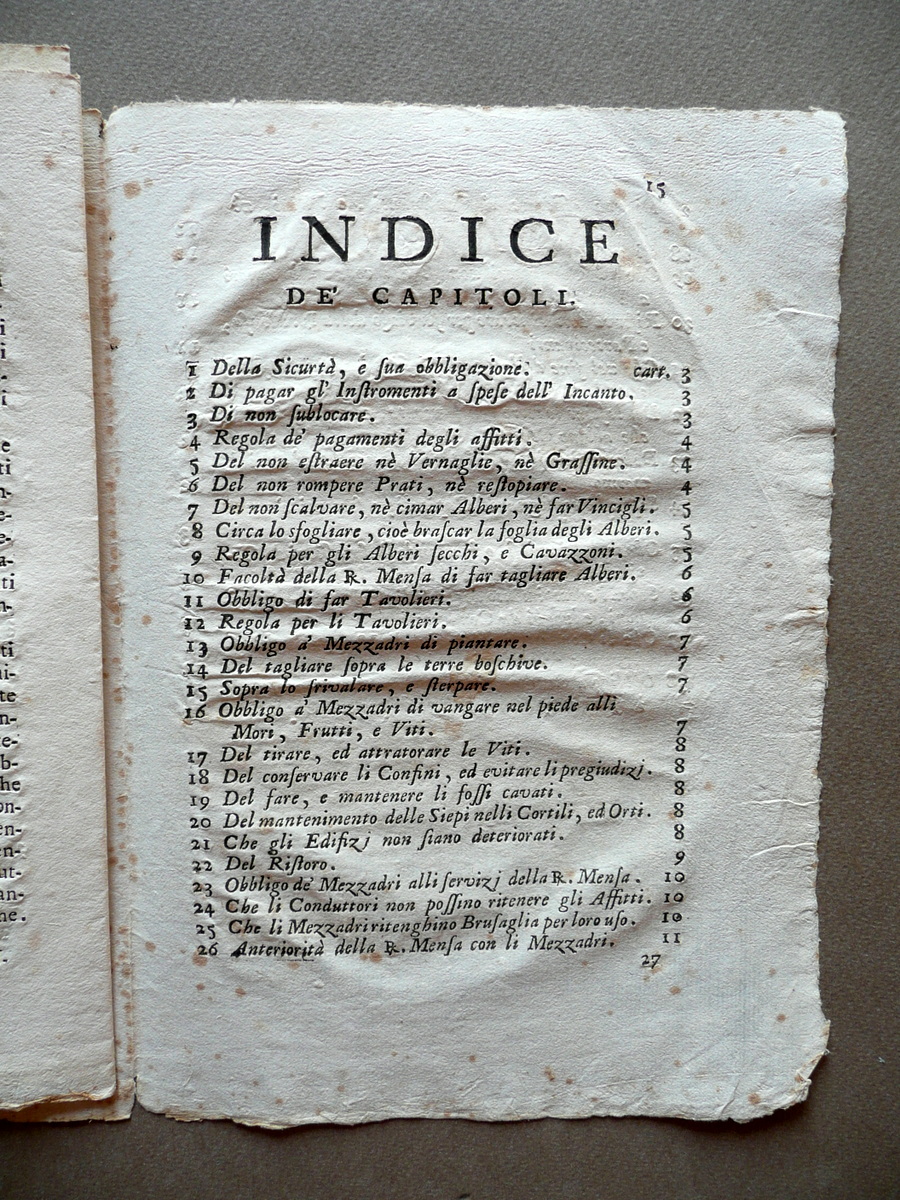 15
INDICE
DE' CAPITOLI.
1 Della Sicurtà, e ſua obbligazione. cart. 3
2 Di pagar gl' Inſtromenti a ſpeſe dell' Incanto. 3
3 Di non ſublocare. 3
4 Regola de' pagamenti degli affitti. 4
5 Del non eſtraere nè Vernaglie, nè Graſſine. 4
6 Del non rompere Prati, nè reſtopiare. 4
7 Del non ſcalvare, nè cimar Alberi, nè far Vincigli. 5
8 Circa lo sfogliare, cioè braſcar la foglia degli Alberi. 5
9 Regola per gli Alberi ſecchi, e Cavazzoni. 5
10 Facoltà della R. Menſa di far tagliare Alberi. 6
11 Obbligo di far Tavolieri. 6
12 Regola per li Tavolieri. 6
13 Obbligo a' Mezzadri di piantare. 7
14 Del tagliare ſopra le terre boſchive. 7
15 Sopra lo ſrivalare, e ſterpare. 7
16 Obbligo a' Mezzadri di vangare nel piede alli
Mori, Frutti, e Viti. 7
17 Del tirare, ed attratorare le Viti. 8
18 Del conſervare li Confini, ed evitare li pregiudizj. 8
19 Del fare, e mantenere li foſſi cavati. 8
20 Del mantenimento delle Siepi nelli Cortili, ed Orti. 8
21 Che gli Edifizj non ſiano deteriorati. 8
22 Del Riſtoro. 9
23 Obbligo de' Mezzadri alli ſervizj della R. Menſa. 10
24 Che li Conduttori non poſſino ritenere gli Affitti. 10
25 Che li Mezzadri ritenghino Bruſaglia per loro uſo. 10
26 Anteriorità della R. Menſa con li Mezzadri. 11
27